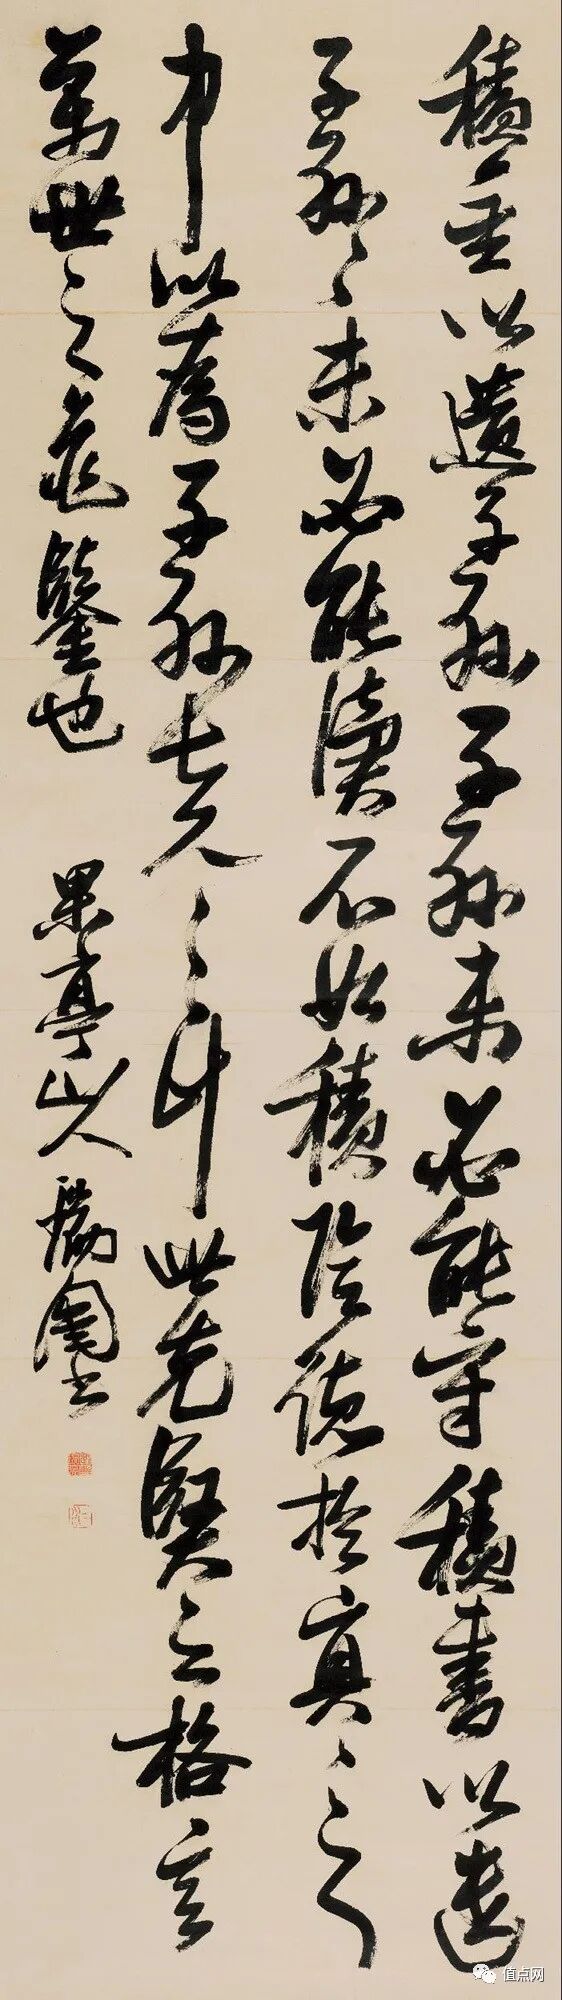 積金以遺子孫子孫未必能守積書以遺
子孫〻未必能讀不如積陰德於冥〻之
中以為子孫長久之計此先賢之格言
萬世之龜鑒也
果亭山人勵圖書
值点网